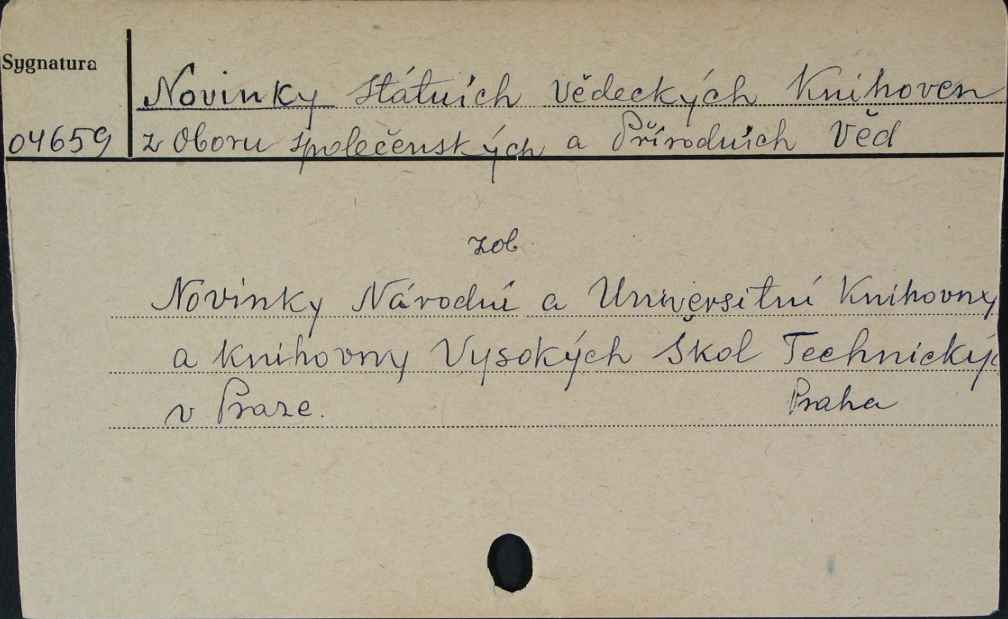 Sygnatura
Novinky Státních Vědeckých Knihoven
04659 z Oboru Společenských a Přírodních Věd
zob.
Novinky Národní a Universitní Knihovny
a Knihovny Vysokých Škol Technickýc
v Praze. Praha